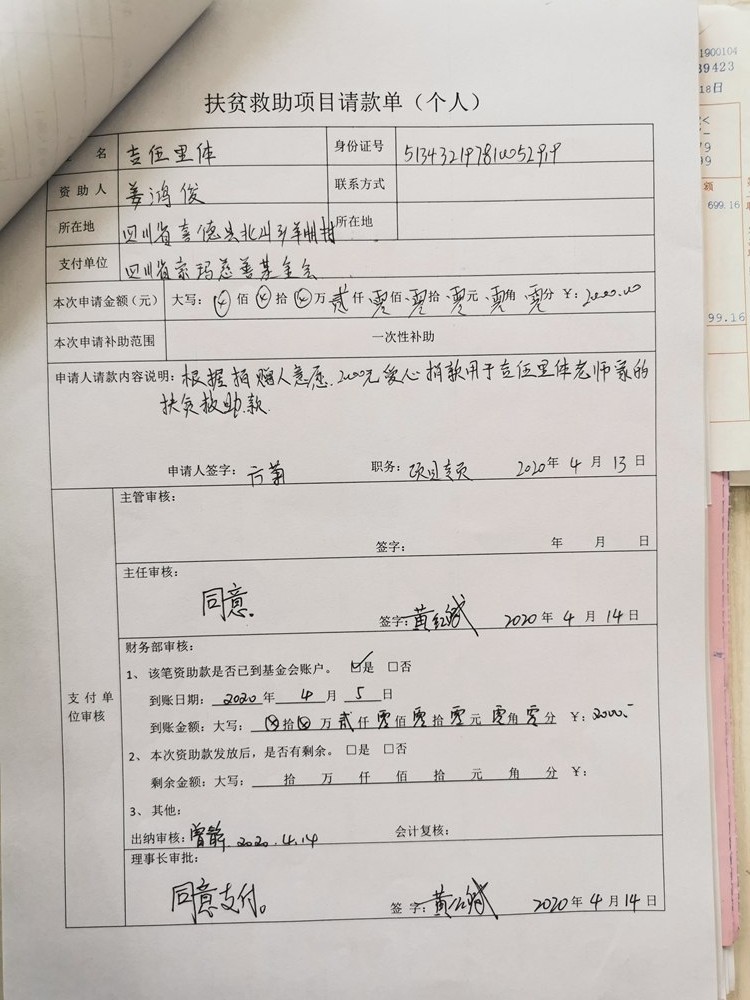 扶贫救助项目请款单（个人）
名 吉伍里体 身份证号 513432197810052919
资助人 姜鸿俊 联系方式
所在地 四川省喜德县北山乡羊明村 所在地
支付单位 四川省索玛慈善基金会
本次申请金额（元） 大写：佰 拾 万 贰 仟 零 佰 零 拾 零 元 零 角 零 分 ￥：2000.00
本次申请补助范围 一次性补助
申请人请款内容说明：根据捐赠人意愿，2000元爱心捐款用于吉伍里体老师家的
扶贫救助款.
申请人签字： 职务：项目专员 2020年4月13日
主管审核：
签字： 年 月 日
主任审核：
同意.
签字：黄红斌 2020年4月14日
支付单位审核
财务部审核：
1、该笔资助款是否已到基金会账户。☑是 □否
到账日期：2020年4月5日
到账金额：大写：拾 万 贰 仟 零 佰 零 拾 零 元 零 角 零 分 ￥：2000.-
2、本次资助款发放后，是否有剩余。□是 □否
剩余金额：大写： 拾 万 仟 佰 拾 元 角 分 ￥：
3、其他：
出纳审核： 2020.4.14 会计复核：
理事长审批：
同意支付。
签字：黄红斌 2020年4月14日
1900104
39423
18日
额
699.16
99.16